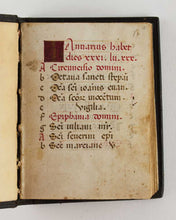 Januarius habet
dies xxxi. lu. xxx.
A Circumcisio domini.
b Octava sancti steph
c Oca sci ioanis evan.
d Oca scor
vigilia.
f Epiphania domini.
g Sci iuliani
A Sci severini epi
b Sci marciani